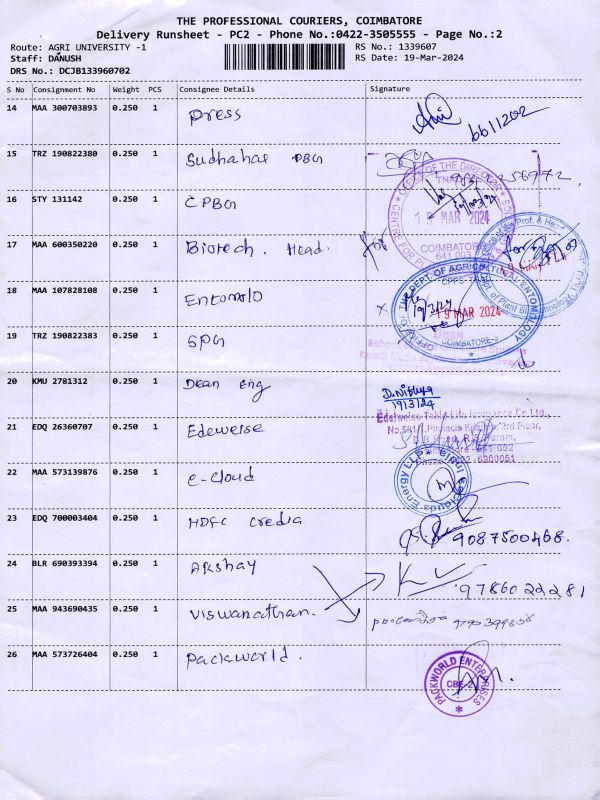 THE PROFESSIONAL COURIERS, COIMBATORE
Delivery Runsheet - PC2 - Phone No.:0422-3505555 - Page No.:2
Route: AGRI UNIVERSITY -1
RS No.: 1339607
Staff: DANUSH
RS Date: 19-Mar-2024
DRS No.: DCJB133960702
S No Consignment No Weight PCS Consignee Details Signature
14 MAA 300703893 0.250 1 press
15 TRZ 190822380 0.250 1 Sudhahar PBG
OFFICE OF THE DIRECTOR
16 STY 131142 0.250 1 CPBG
19 MAR 2024
17 MAA 600350220 0.250 1 Biotech. Head.
COIMBATORE
641 003
18 MAA 107828108 0.250 1 Entomolo
19/3/24
19 MAR 2024
COIMBATORE-3
19 TRZ 190822383 0.250 1 SPG
20 KMU 2781312 0.250 1 Dean Eng
D. Nithya
19/3/24
21 EDQ 26360707 0.250 1 Edeweise
Edelweiss Tokio Life Insurance Co.Ltd.,
22 MAA 573139876 0.250 1 e-cloud
Energy LLP
23 EDQ 700003404 0.250 1 HDFC credia
9087500468.
24 BLR 690393394 0.250 1 Akshay
9786022281
25 MAA 943690435 0.250 1 Viswanathan.
26 MAA 573726404 0.250 1 Packworld.
PACKWORLD ENTERPRISES
CBE-2